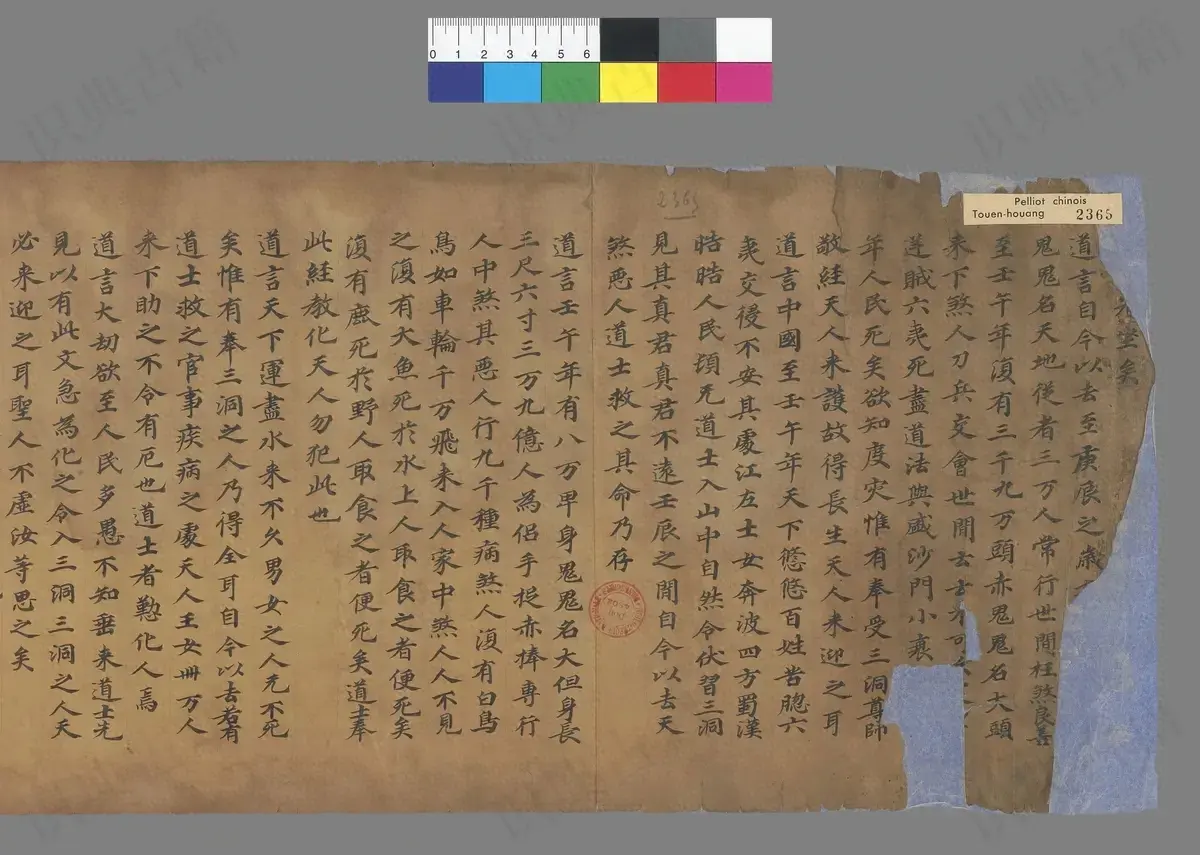 Pelliot chinois
Touen-houang 2365
0 1 2 3 4 5 6
2365
矣
道言自今以去至庚辰之歳
鬼鬼名天地従者三万人常行世間枉煞良善
至壬午年復有三千九万頭赤鬼鬼名大頭
来下煞人刀兵交會世間
賊六夷死盡道法興盛沙門小衰
年人民死矣欲知度灾惟有奉受三洞尊師
敬経天人来護故得長生天人来迎之耳
道言中國至壬午年天下悠悠百姓苦惱六
夷交侵不安其處江左士女奔波四方蜀漢
晧晧人民頃无道士入山中自然令伏習三洞
見其真君真君不遠壬辰之間自今以去天
煞悪人道士救之其命乃存
道言壬午年有八万甲身鬼鬼名大但身長
三尺六寸三万九億人為侶手捉赤棒専行
人中煞其悪人行九千種病煞人復有白鳥
鳥如車輪千万飛来入人家中煞人人不見
之復有大魚死於水上人取食之者便死矣
復有鹿死於野人取食之者便死矣道士奉
此経教化天人勿犯此也
道言天下運盡水来不久男女之人无不死
矣惟有奉三洞之人乃得全耳自今以去若有
道士救之官事疾病之處天人玉女卌万人
来下助之不令有厄也道士者懃化人焉
道言大劫欲至人民多愚不知垂来道士先
見以有此文急為化之令入三洞三洞之人天
必来迎之耳聖人不虚汝等思之矣